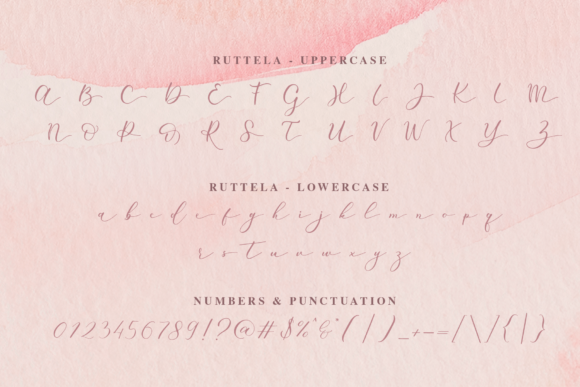 RUTTELA - UPPERCASE
A B C D E F G H I J K L M
N O P Q R S T U V W X Y Z
RUTTELA - LOWERCASE
a b c d e f g h i j k l m n o p q
r s t u v w x y z
NUMBERS & PUNCTUATION
0123456789!?@#$%^&*(|)_+-=/\/{|}